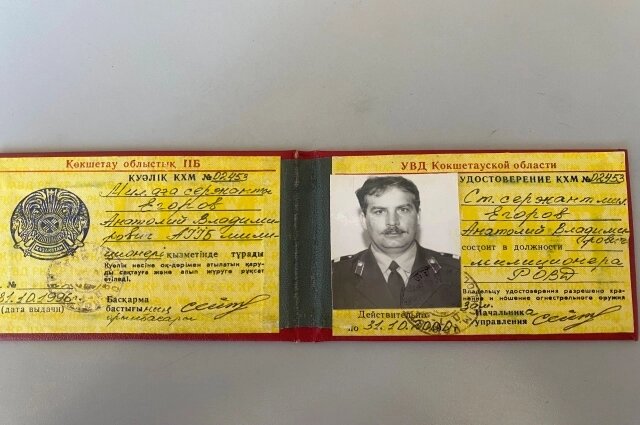 Көкшетау облыстық ІІБ
КУӘЛІК КХМ № 02453
Мил. аға сержанты
Егоров
Анатолий Владими
рович АІІБ мили
ционері қызметінде тұрады
Куәлік иесіне оқ-дәрімен атылатын қару-
ды сақтауға және алып жүруге рұқсат
етіледі.
№
31.10.1996
(дата выдачи)
Басқарма
бастығының
орынбасары
УВД Кокшетауской области
УДОСТОВЕРЕНИЕ КХМ № 02453
Ст. сержант мил.
Егоров
Анатолий Владими
рович
состоит в должности
милиционера
РОВД
Владельцу удостоверения разрешено хра-
нение и ношение огнестрельного оружия
Зам.
Начальника
управления
Действительно
по 31.10.2000